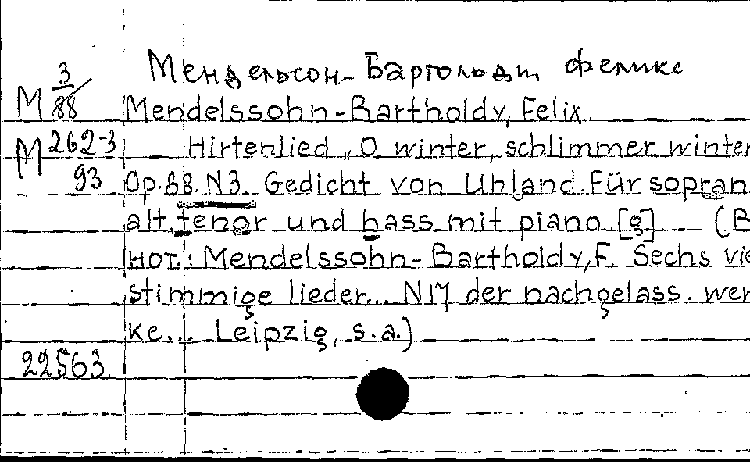 Мендельсон-Бартольди Феликс
М 3/88 Mendelssohn-Bartholdy, Felix.
М 262-3/93 Hirtenlied „O winter, schlimmer winter
Op.88. N3. Gedicht von Uhland. Für sopran,
alt, tenor und bass mit piano [g] (В
нот.: Mendelssohn-Bartholdy, F. Sechs vie
stimmige lieder... N17 der nachgelass. wer
ke... Leipzig, s.a.)
22563